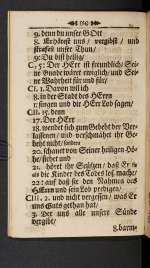 9. denn du unser GOtt
8. Erhörest uns / vergibst / und
strafest unser Thun /
9: Du bist heilig /
C, 5: Der HErr ist freundlich / Sei-
ne Gnade währet ewiglich / und Sei-
ne Wahrheit für und für /
CI. 1. Davon will ich
8. in der Stadt des HErrn
1: singen und dir HErr Lob sagen /
CII. 15. denn
17. Der HErr
18. wendet sich zum Gebeht der Ver-
lassenen / und verschmähet ihr Ge-
beht nicht /
20. schauet von Seiner heiligen Hö-
he / siehet und
21. höret ihr Seufzen / daß Er
die Kinder des Todes loß mache /
22: auf daß sie den Nahmen des
HErrn und sein Lob predigen /
CIII, 2. und nicht vergessen / was Er
uns Guts gethan hat /
3. Der uns alle unsere Sünde
vergibt /